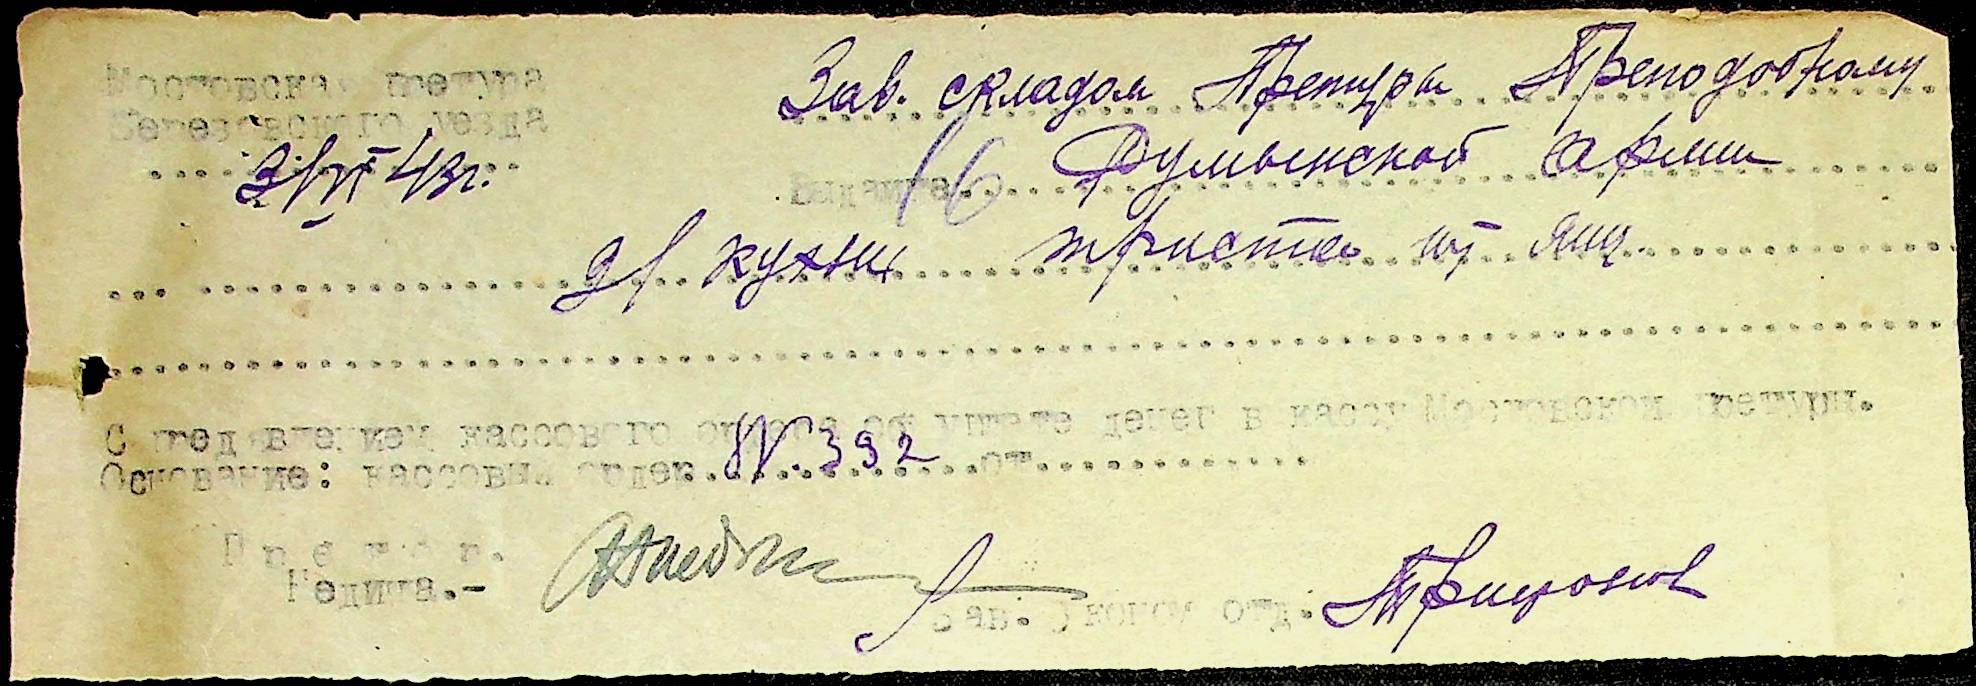 Мостовская претура
Березовского уезда
3/VI 43г.
Зав. складом Претуры Преподобному
Выдайте 16 Румынской армии
дл кухни триста шт яиц.
С пред'явлением кассового ордера об уплате денег в кассу Мостовской претуры.
Основание: кассовый ордер. № 392 от
Претор.
Редида.-
Зав. Эконом отд.